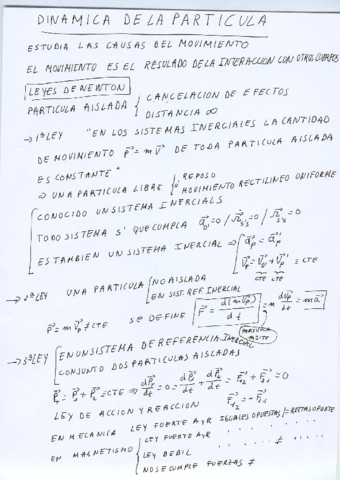 DINAMICA DE LA PARTICULA
ESTUDIA LAS CAUSAS DEL MOVIMIENTO
EL MOVIMIENTO ES EL RESULADO DE LA INTERACCION CON OTROS CUERPOS
LEYES DE NEWTON
PARTICULA AISLADA { CANCELACION DE EFECTOS
DISTANCIA ∞
→ 1ª LEY "EN LOS SISTEMAS INERCIALES LA CANTIDAD
DE MOVIMIENTO p⃗ = m v⃗ DE TODA PARTICULA AISLADA
ES CONSTANTE"
⇒ UNA PARTICULA LIBRE { REPOSO
ó MOVIMIENTO RECTILINEO UNIFORME
CONOCIDO UN SISTEMA INERCIAL S
TODO SISTEMA S' QUE CUMPLA
ES TAMBIEN UN SISTEMA INERCIAL ⇒
= CTE
CTE CTE
→ 2ª LEY UNA PARTICULA { NO AISLADA
EN SIST. REF INERCIAL
p⃗ = m v⃗p ≠ CTE SE DEFINE F⃗ = d(m v⃗p)/dt = m dv⃗p/dt = m a⃗
PARTICULA
→ 3ª LEY { EN UN SISTEMA DE REFERENCIA INERCIAL
CONJUNTO DOS PARTICULAS AISLADAS
= CTE ⇒ = 0
LEY DE ACCION Y REACCION
EN MECANICA LEY FUERTE A y R IGUALES OPUESTAS / = RECTA SOPORTE
EN MAGNETISMO { LEY FUERTE A y R
LEY DEBIL ≠
NO SE CUMPLE FUERZAS ≠